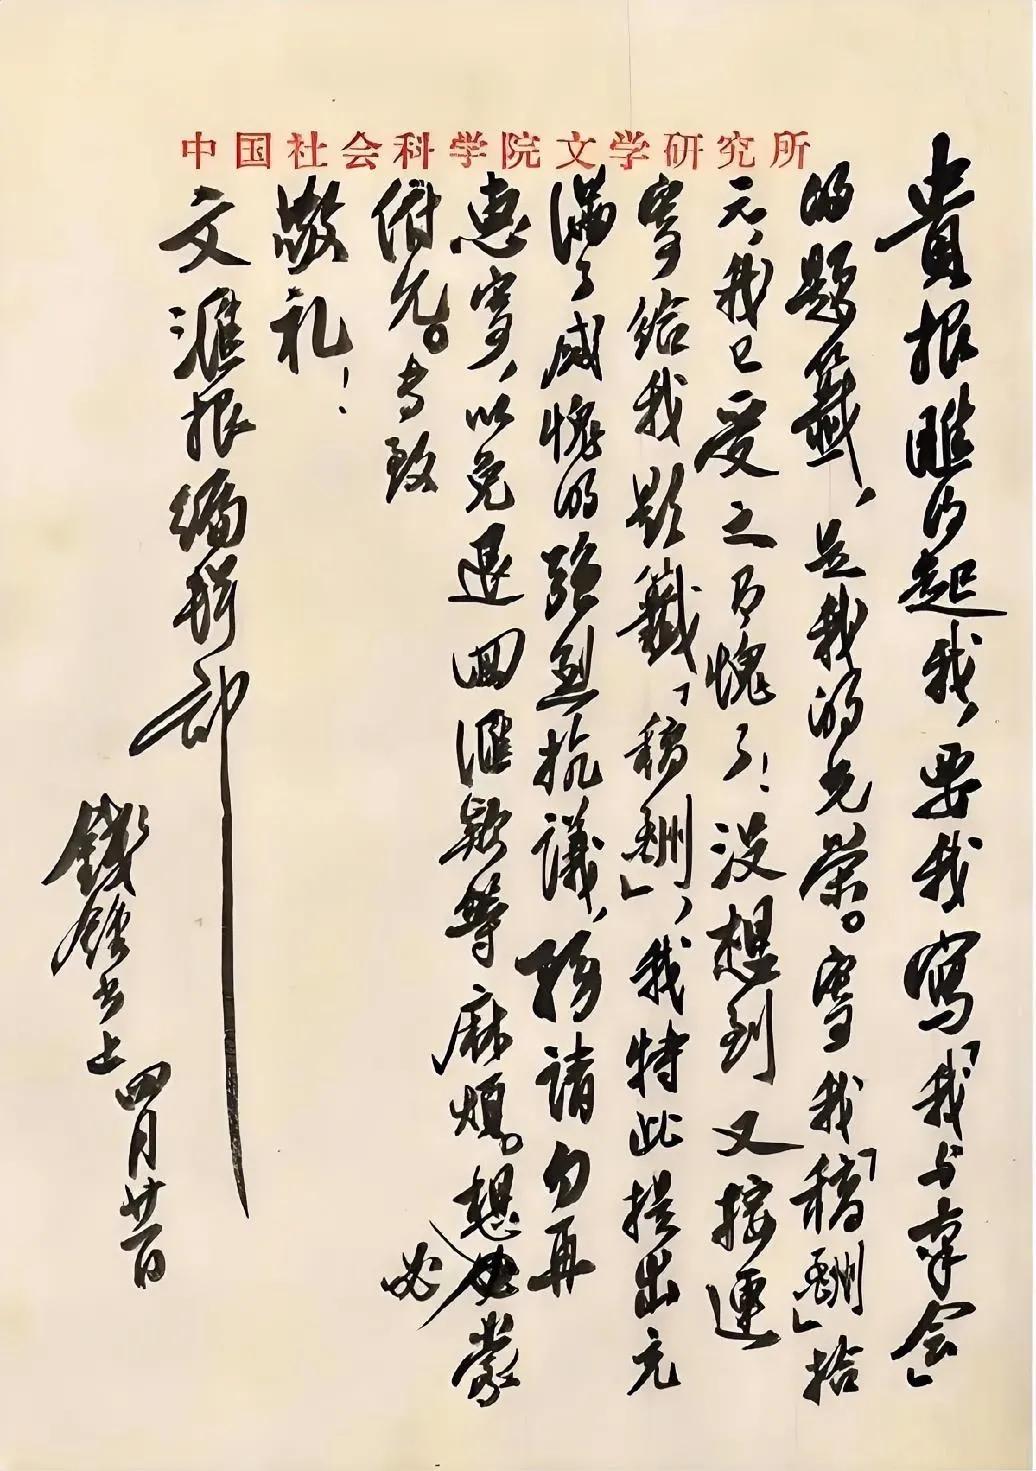 中国社会科学院文学研究所
貴报瞧得起我，要我寫「我与会」
的题籤，是我的光荣。寄我「稿酬」拾
元，我已受之有愧了！没想到又接連
寄给我题籤「稿酬」，我特此提出充
满了感愧的强烈抗議，務請勿再
惠寄，以免退回滙款等麻煩。想必蒙
俯允。专致
敬礼！
文滙报编辑部
錢鍾书上 四月廿一日